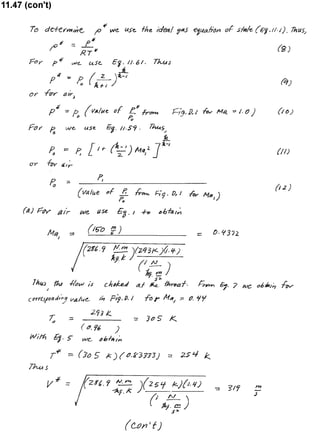 11.47 (con't)
To determine ρ* we use the ideal gas equation of state (Eq. 11.1). Thus,
ρ* = p* / RT* (8)
For p* we use Eq. 11.61. Thus
p* = p₀ (2 / k+1)^(k/k-1) (9)
or for air,
p* = p₀ (value of p*/p₀ from Fig. D.1 for Ma = 1.0) (10)
For p₀ we use Eq. 11.59. Thus,
p₀ = p₁ [1 + (k-1 / 2) Ma₁²]^(k/k-1) (11)
or for air
p₀ = p₁ / (value of p₁/p₀ from Fig. D.1 for Ma₁) (12)
(a) For air we use Eq. 1 to obtain
Ma₁ = (150 m/s) / √((286.9 N.m/kg.K)(293K)(1.4) / (1 N / kg.m/s²)) = 0.4372
Thus, the flow is choked at the throat. From Eq. 7 we obtain for
corresponding value in Fig. D.1 for Ma₁ = 0.44
T₀ = 293 K / (0.96) = 305 K
With Eq. 5 we obtain
T* = (305 K)(0.8333) = 254 K
Thus
V* = √((286.9 N.m/kg.K)(254 K)(1.4) / (1 N / kg.m/s²)) = 319 m/s
(con't)